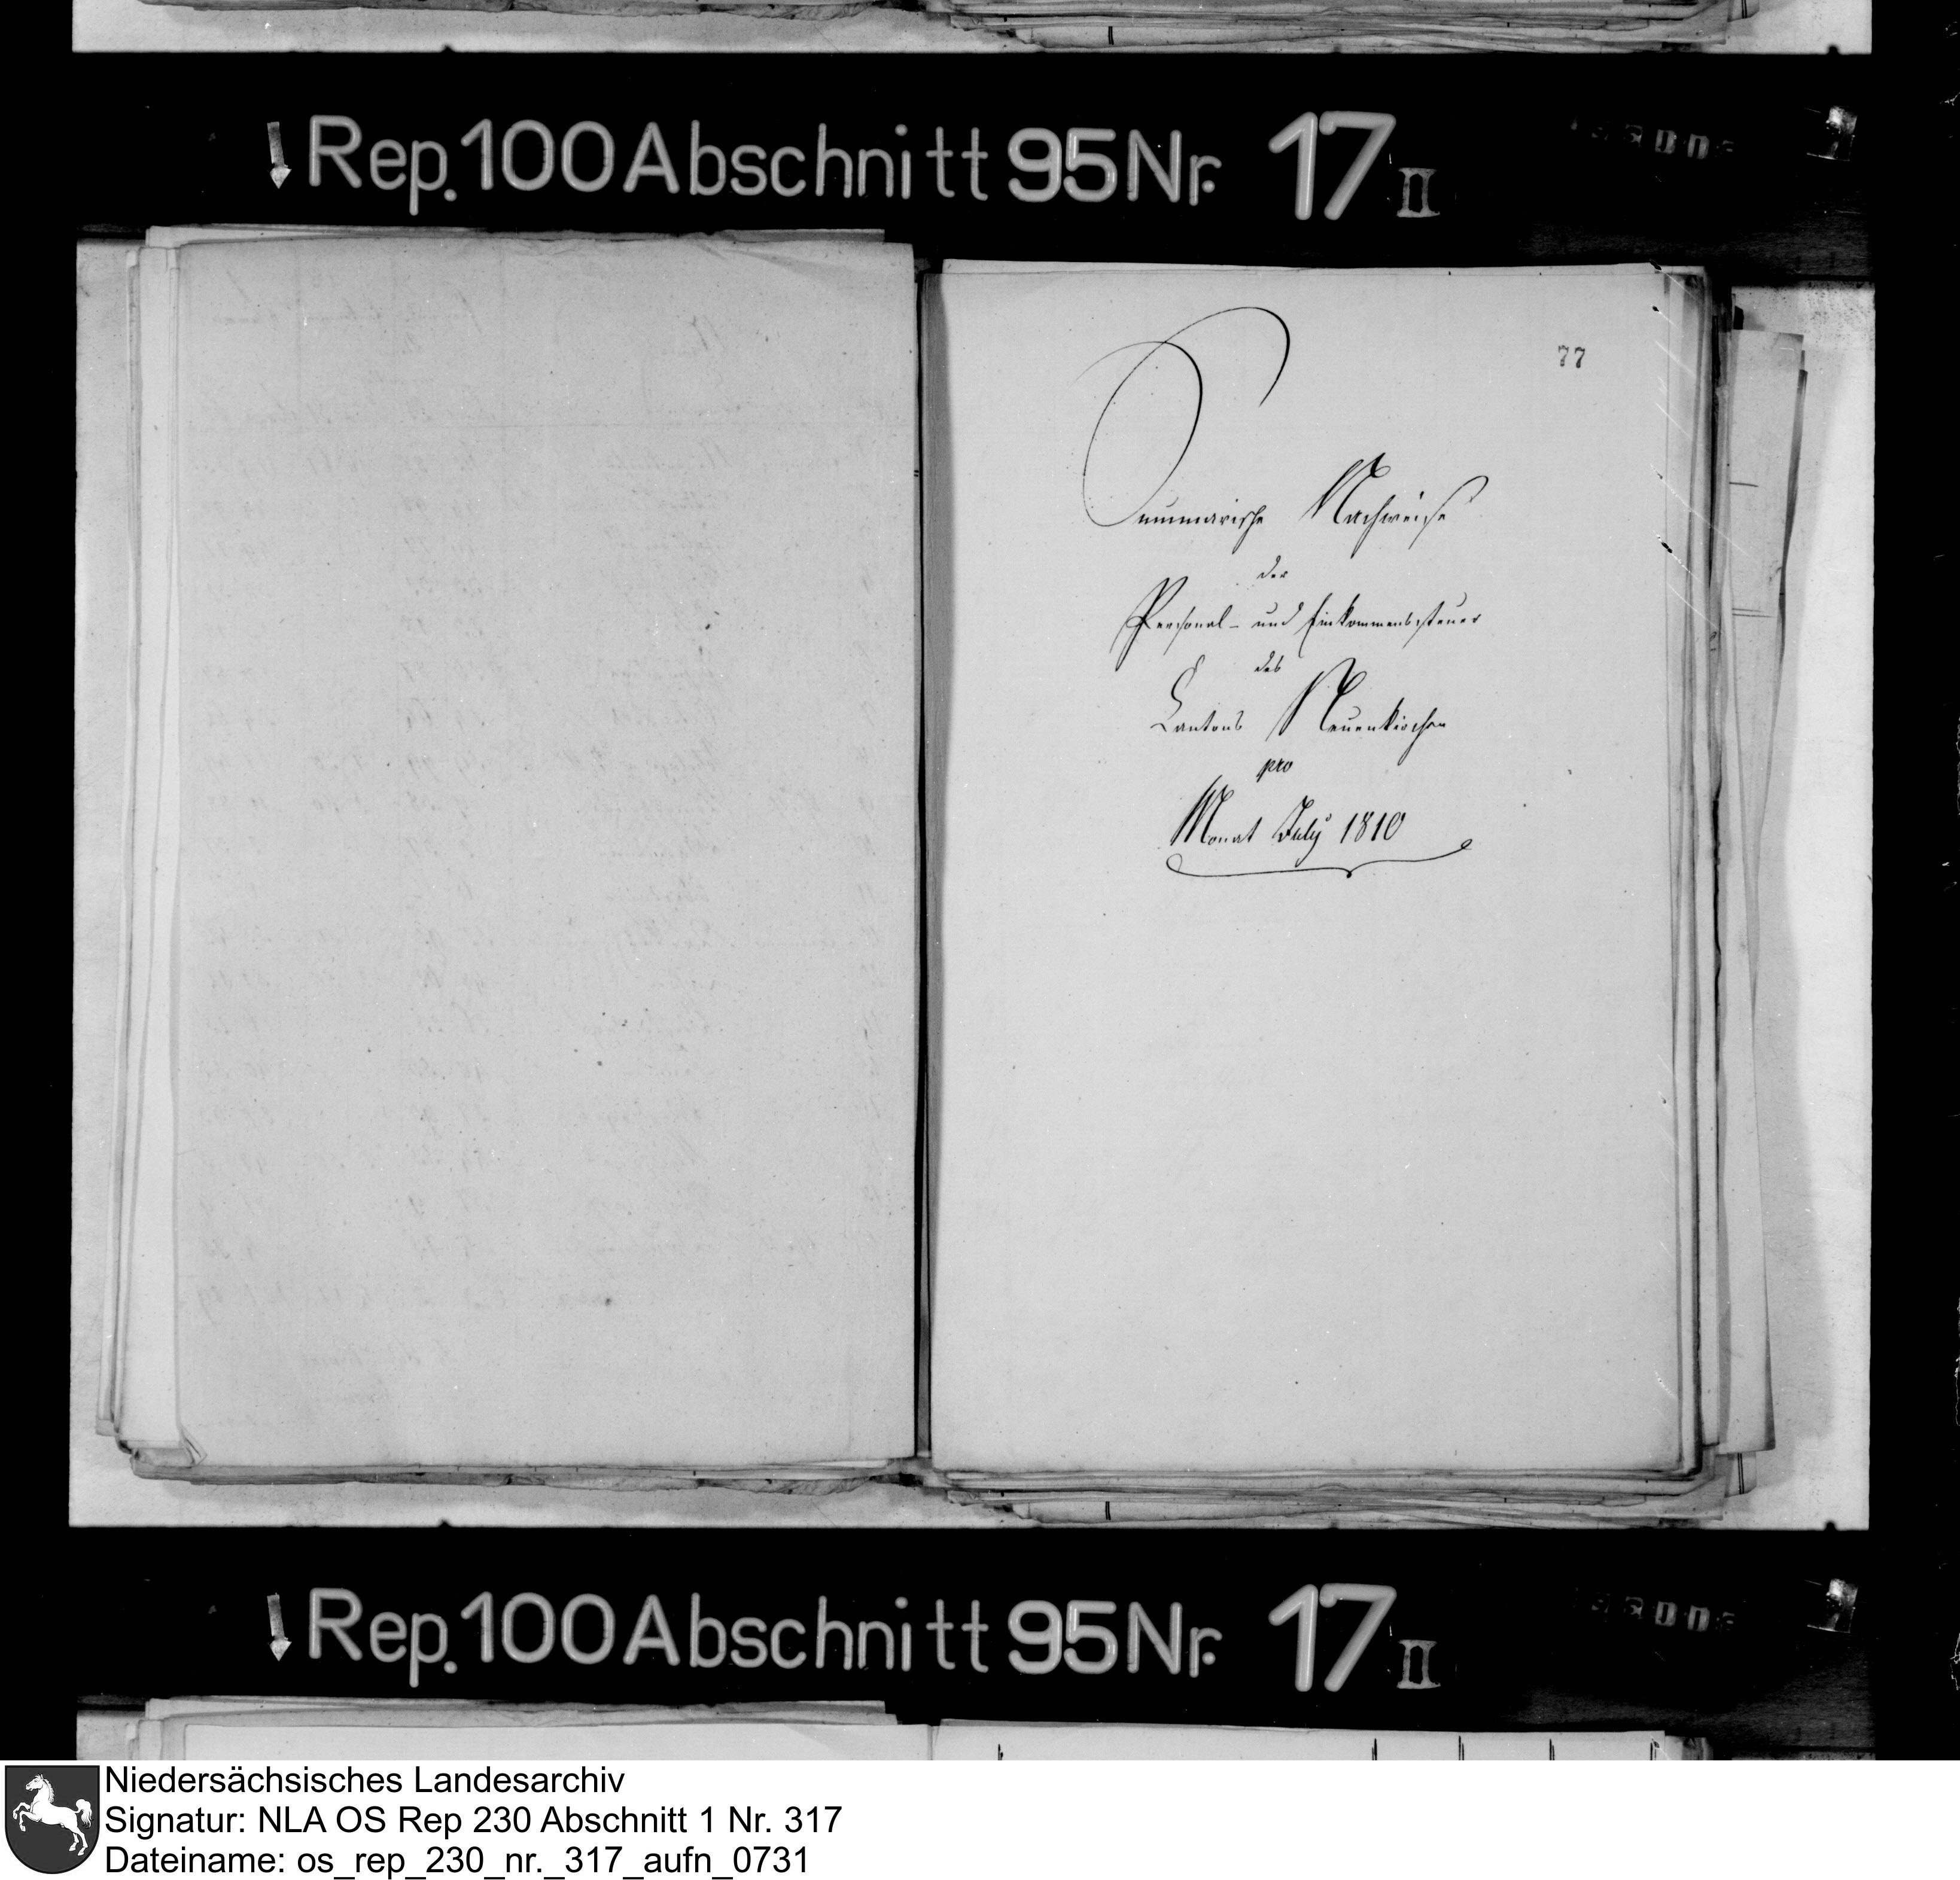 Rep. 100 Abschnitt 95 Nr. 17 II
77
Summarische Nachweise
der
Personal- und Einkommenssteuer
des
Cantons Neuenkirchen
pro
Monat July 1810
Rep. 100 Abschnitt 95 Nr. 17 II
Niedersächsisches Landesarchiv
Signatur: NLA OS Rep 230 Abschnitt 1 Nr. 317
Dateiname: os_rep_230_nr._317_aufn_0731